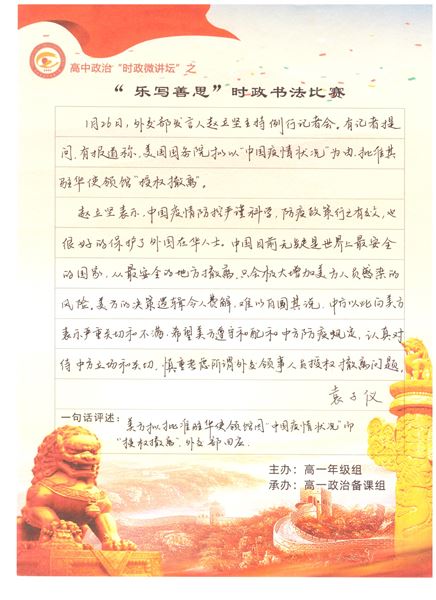 高中政治“时政微讲坛”之
“乐写善思”时政书法比赛
1月26日,外交部发言人赵立坚主持例行记者会。有记者提
问,有报道称,美国国务院拟以“中国疫情状况”为由,批准其
驻华使领馆“授权撤离”。
赵立坚表示,中国疫情防控严谨科学,防疫政策行之有效,也
很好的保护了外国在华人士。中国目前无疑是世界上最安全
的国家,从最安全的地方撤离,只会极大增加美方人员感染的
风险。美方的决策逻辑令人费解,难以自圆其说,中方以此向美方
表示严重关切和不满,希望美方遵守和配和中方防疫规定,认真对
待中方立场和关切,慎重考虑所谓外交领事人员授权撤离问题。
袁子仪
一句话评述:美方拟批准驻华使领馆因“中国疫情状况”而
“授权撤离”,外交部回应
主办:高一年级组
承办:高一政治备课组